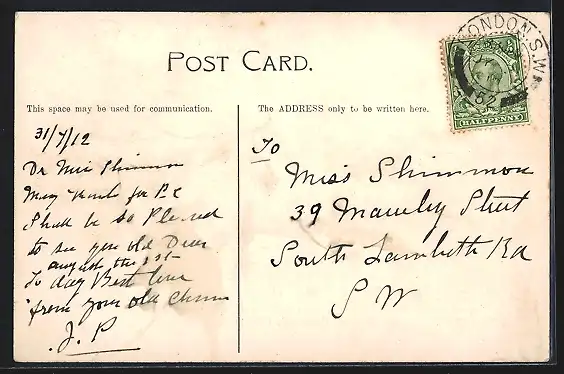 POST CARD.
LONDON. S.W
This space may be used for communication.
The ADDRESS only to be written here.
HALFPENNY
31/7/12
Dr Miss Shimmon
Many Thanks for P.C
Shall be so Pleased
to see you old Dear
august the 1st
To day Best love
from your old Chum
J. P
To
Miss Shimmon
39 Mawley Street
South Lambeth Rd
S W